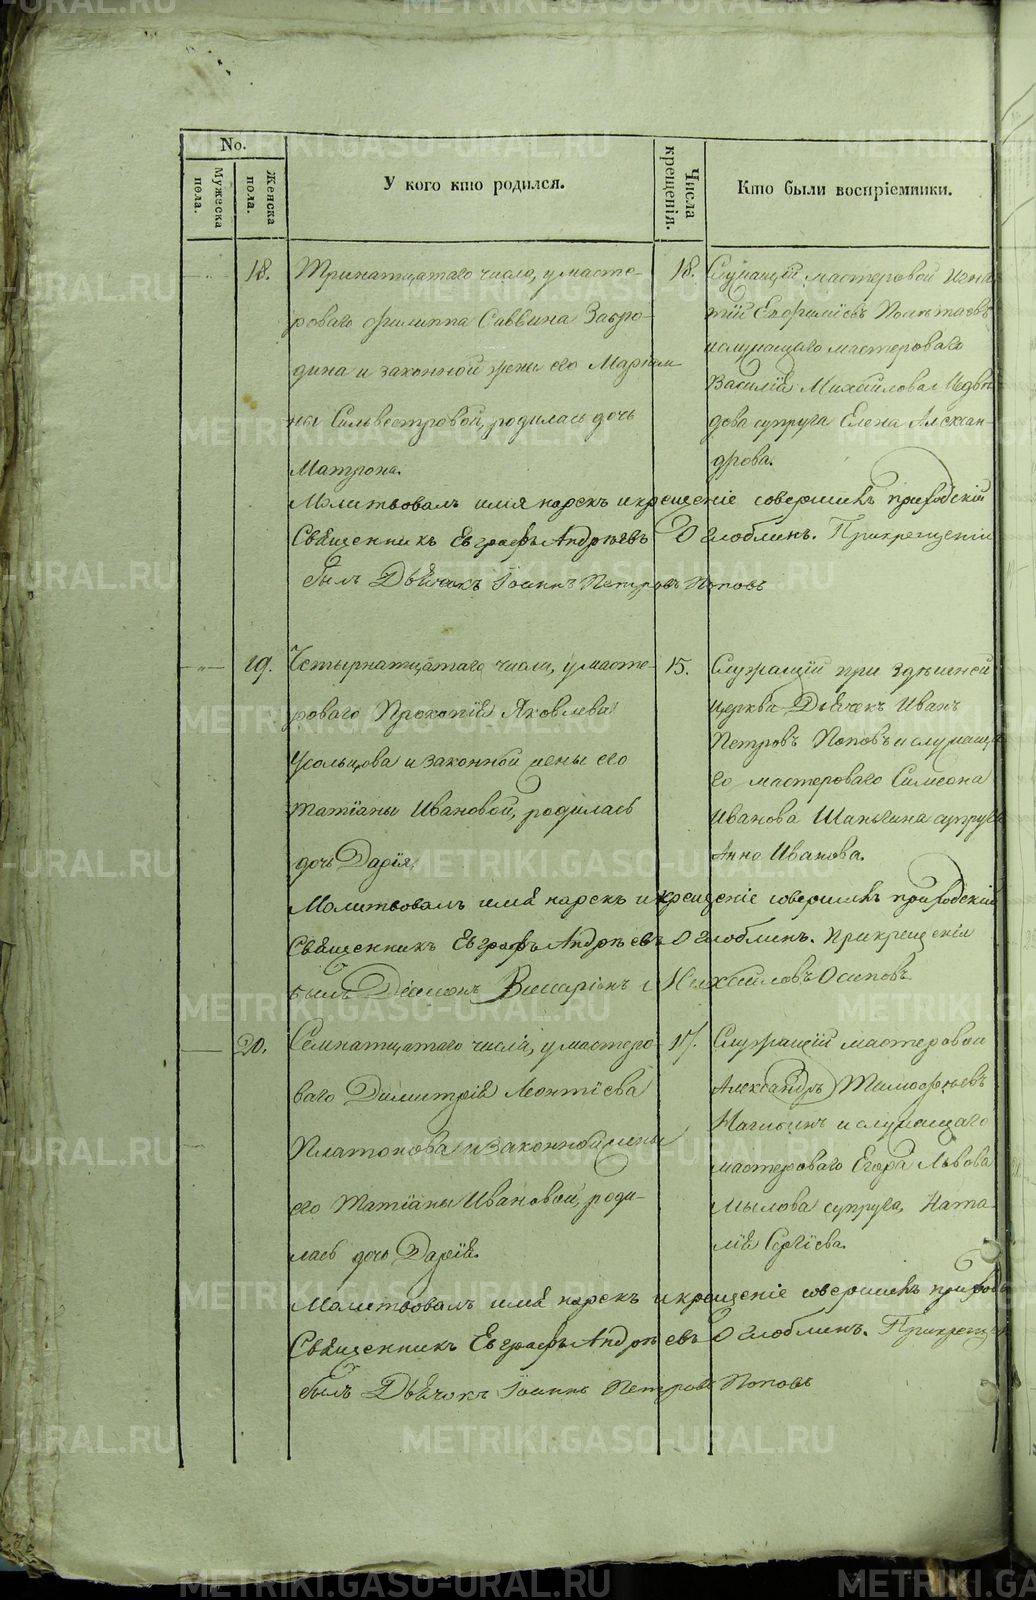 No.
Мужеска пола.
Женска пола.
У кого кто родился.
Числа крещенія.
Кто были воспріемники.
18.
Тринатцатаго числа, у масте-
роваго Филиппа Саввина Завро-
дина и законной жены его
ны Силвестровой, родилась дочь
Матрона.
18.
Служащій мастеровой Игна
тій Евфиміевъ
и служащаго мастероваго
Василія Михайлова
дова супруга Елена Алексан-
дрова.
Молитвовалъ имя нарекъ и крещеніе совершилъ приходскій
Священникъ Евграфъ Андреевъ Оглоблинъ. При крещеніи
былъ Дьячокъ Іоаннъ Петровъ Поповъ
19.
Четырнатцатаго числа, у масте-
роваго Прокопія Яковлева
Усольцова и законной жены его
Татіаны Ивановой, родилась
дочь Дарія.
15.
Служащій при здешней
церкви Дьячекъ Иванъ
Петровъ Поповъ и служаща
го мастероваго Симеона
Иванова Шаньгина супруга
Анна Иванова.
Молитвовалъ имя нарекъ и крещеніе совершилъ приходскій
Священникъ Евграфъ Андреевъ Оглоблинъ. При крещеніи
былъ Діаконъ Виссаріонъ Михайловъ Осиповъ
20.
Семнатцатаго числа, у мастеро-
ваго Димитрія Леонтіева
Платонова и законной жены
его Татіаны Ивановой, роди-
лась дочь Дарія.
17.
Служащій мастеровой
Александръ Тимофеевъ
и служащаго
мастероваго Егора Львова
Мылова супруга Ната
лія Сергіева.
Молитвовалъ имя нарекъ и крещеніе совершилъ приход
Священникъ Евграфъ Андреевъ Оглоблинъ. При крещен
былъ Дьячокъ Іоаннъ Петровъ Поповъ
METRIKI.GASO-URAL.RU